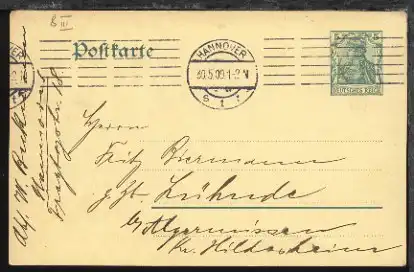 B III
Postkarte
HANNOVER
30.5.09.1-2N
* s 1 r
DEUTSCHES REICH
Herrn
Fritz Biermann
z. Zt. Lühnde
b/ Algermissen
Kr. Hildesheim
Abs. W.
Hannover